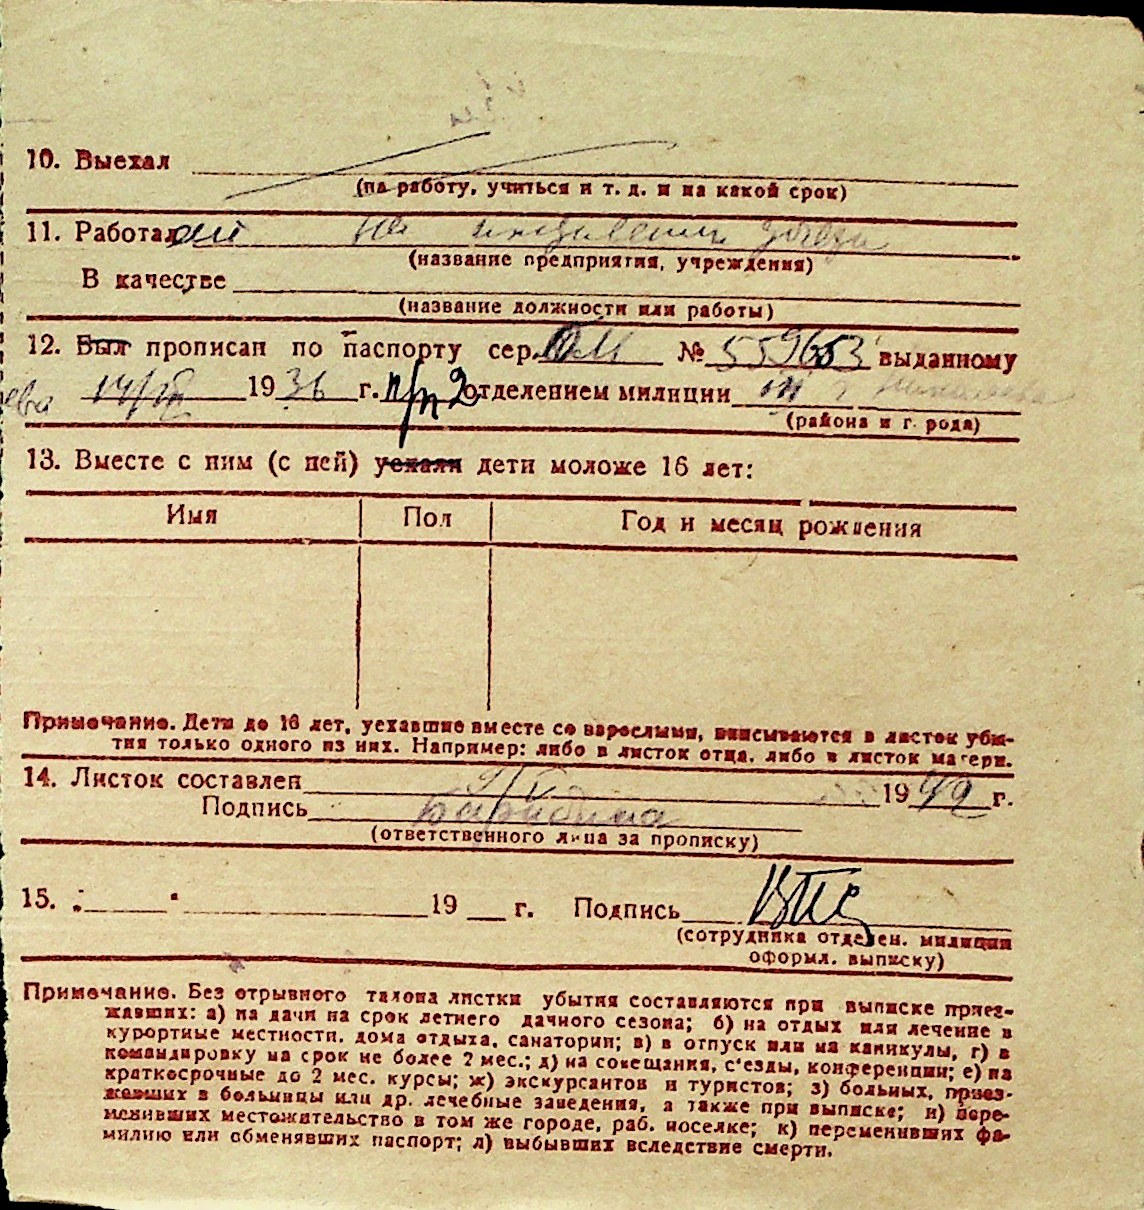 10. Выехал
(на работу, учиться и т. д. и на какой срок)
11. Работал
(название предприятия, учреждения)
В качестве
(название должности или работы)
12. Был прописан по паспорту сер. ЮМ № 559653 выданному
1936 г. п/п 2 отделением милиции
(района и г рода)
13. Вместе с ним (с ней) уехали дети моложе 16 лет:
Имя Пол Год и месяц рождения
Примечание. Дети до 16 лет, уехавшие вместе со взрослыми, вписываются в листок убы-
тия только одного из них. Например: либо в листок отца, либо в листок матери.
14. Листок составлен 1949 г.
Подпись
(ответственного лица за прописку)
15. 19 г. Подпись
(сотрудника отделен. милиции
оформл. выписку)
Примечание. Без отрывного талона листки убытия составляются при выписке приез-
жавших: а) на дачи на срок летнего дачного сезона; б) на отдых или лечение в
курортные местности, дома отдыха, санатории; в) в отпуск или на каникулы, г) в
командировку на срок не более 2 мес.; д) на совещания, с'езды, конференции; е) на
краткосрочные до 2 мес. курсы; ж) экскурсантов и туристов; з) больных, приез-
жавших в больницы или др. лечебные заведения, а также при выписке; и) пере-
менивших местожительство в том же городе, раб. поселке; к) переменивших фа-
милию или обменявших паспорт; л) выбывших вследствие смерти.